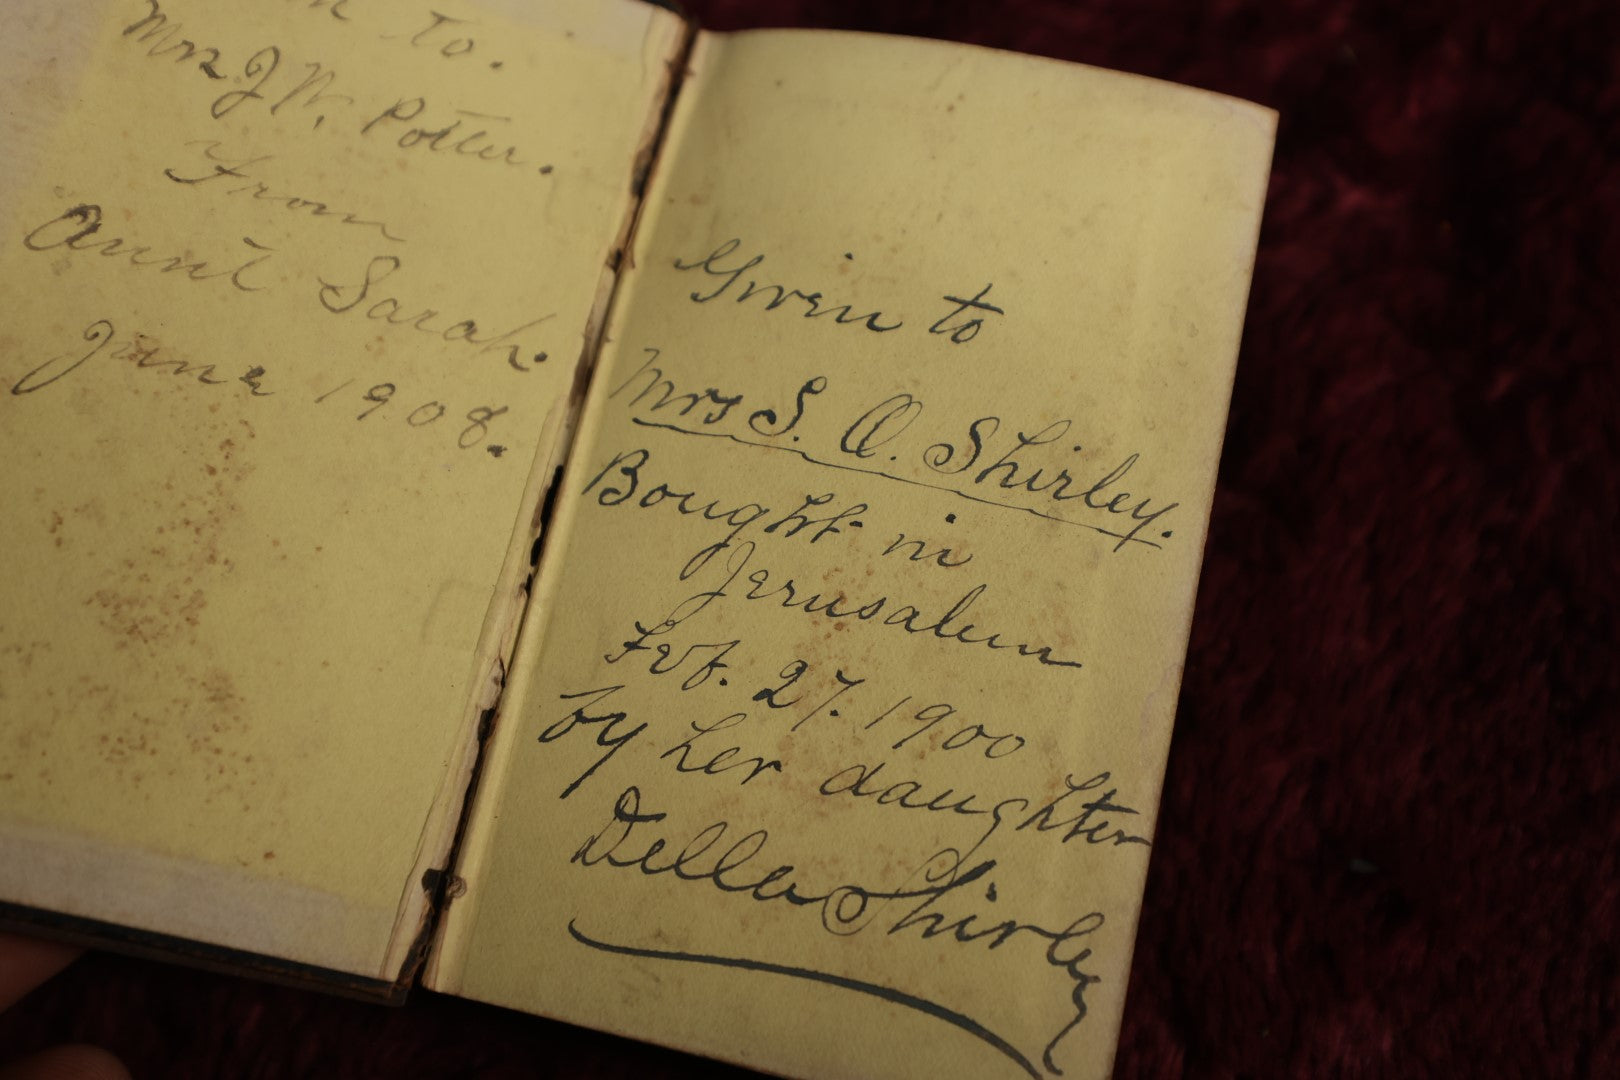 to.
Mrs J. W. Potter.
From
Aunt Sarah.
June 1908.
Given to
Mrs S. A. Shirley.
Bought in
Jerusalem
Feb. 27. 1900
by her daughter
Della Shirley